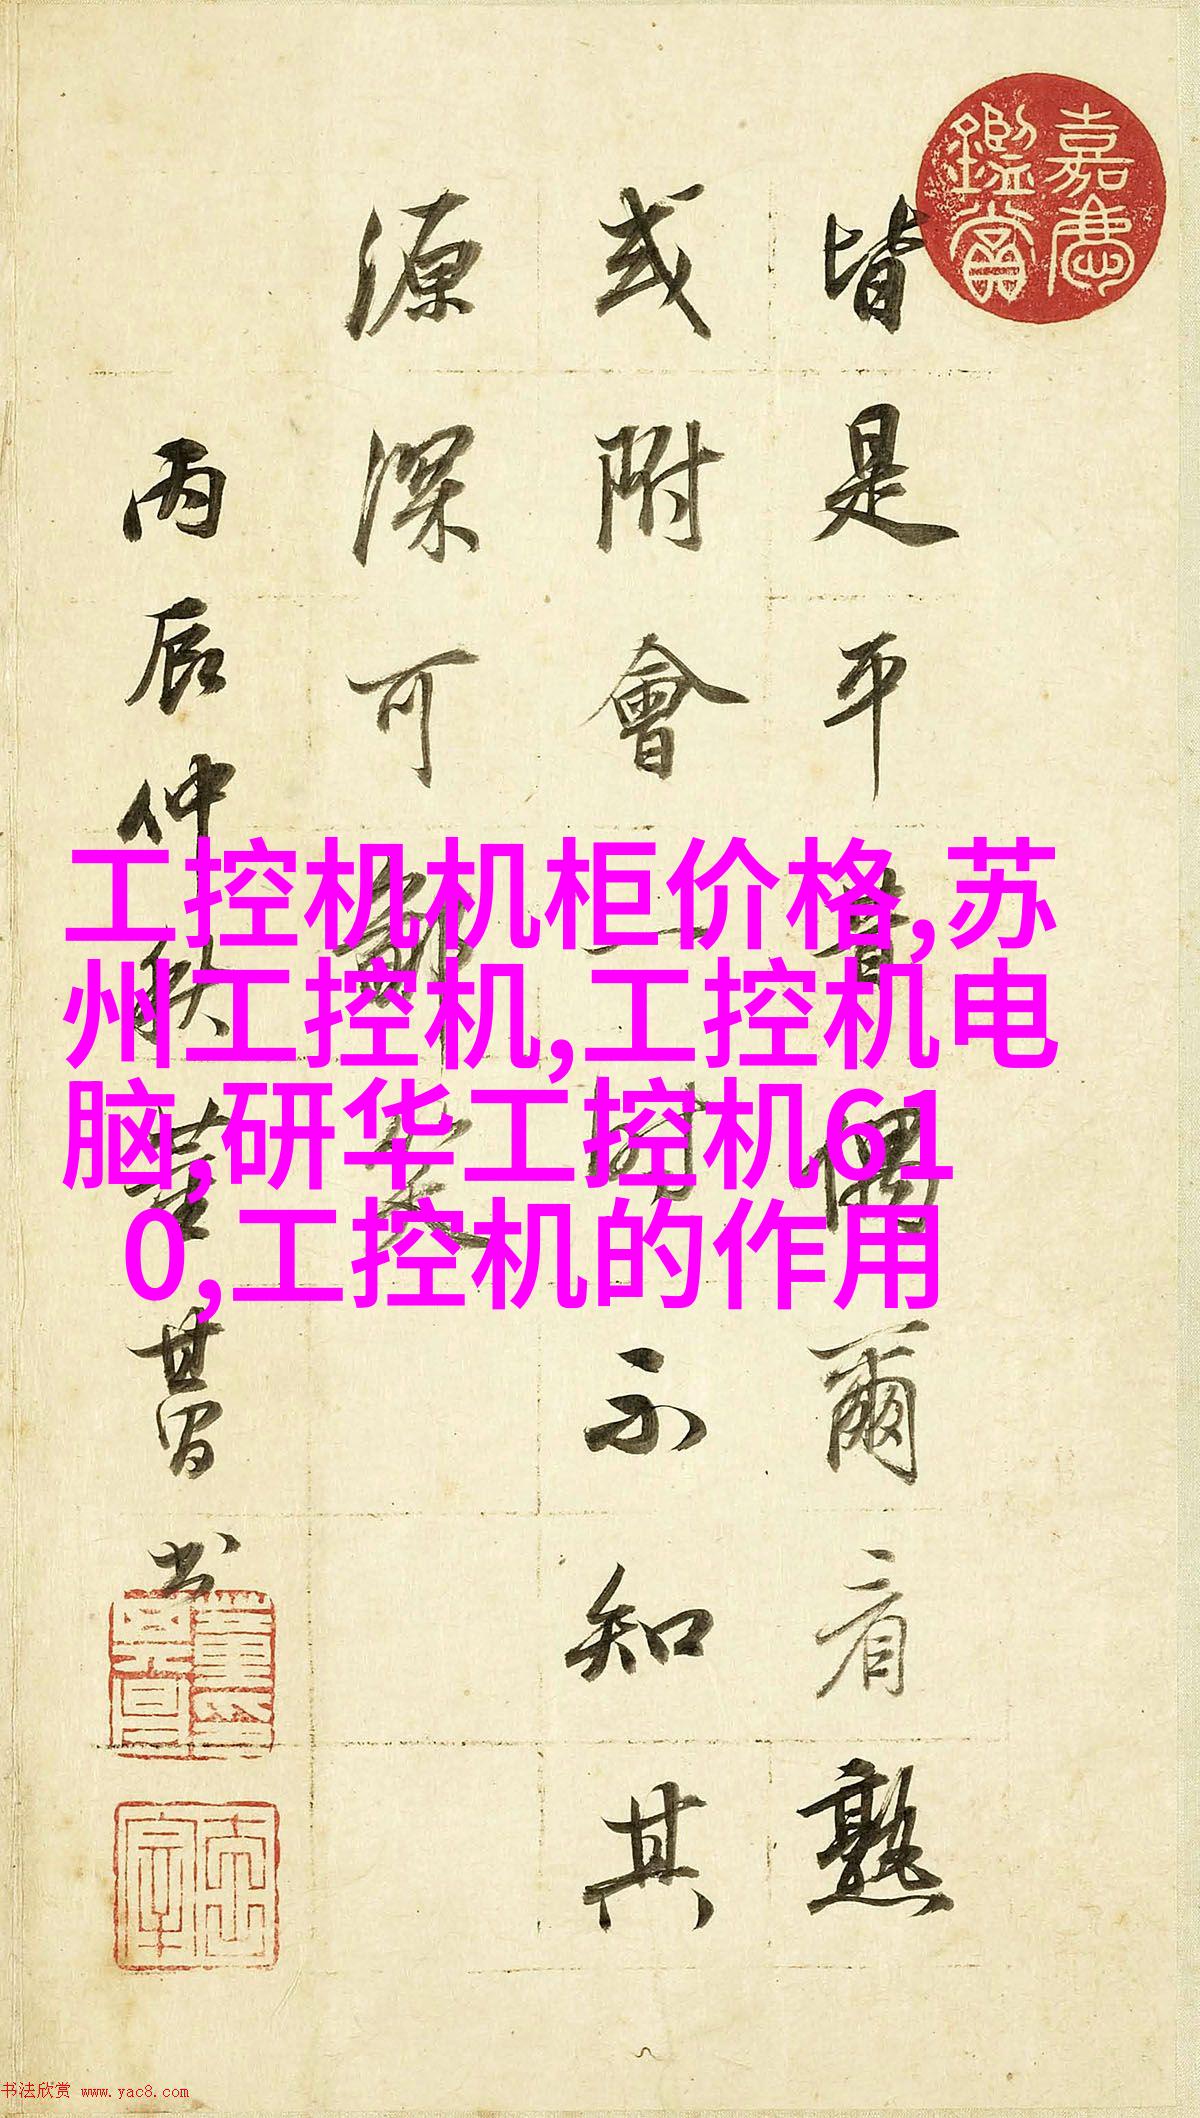 嘉慶
鑑賞
皆是平昔偶爾看熟
或附會一時不知其
源深可鄙笑
丙辰仲秋董其昌書
工控机机柜价格,苏
州工控机,工控机电
脑,研华工控机61
0,工控机的作用
书法欣赏 www.yac8.com